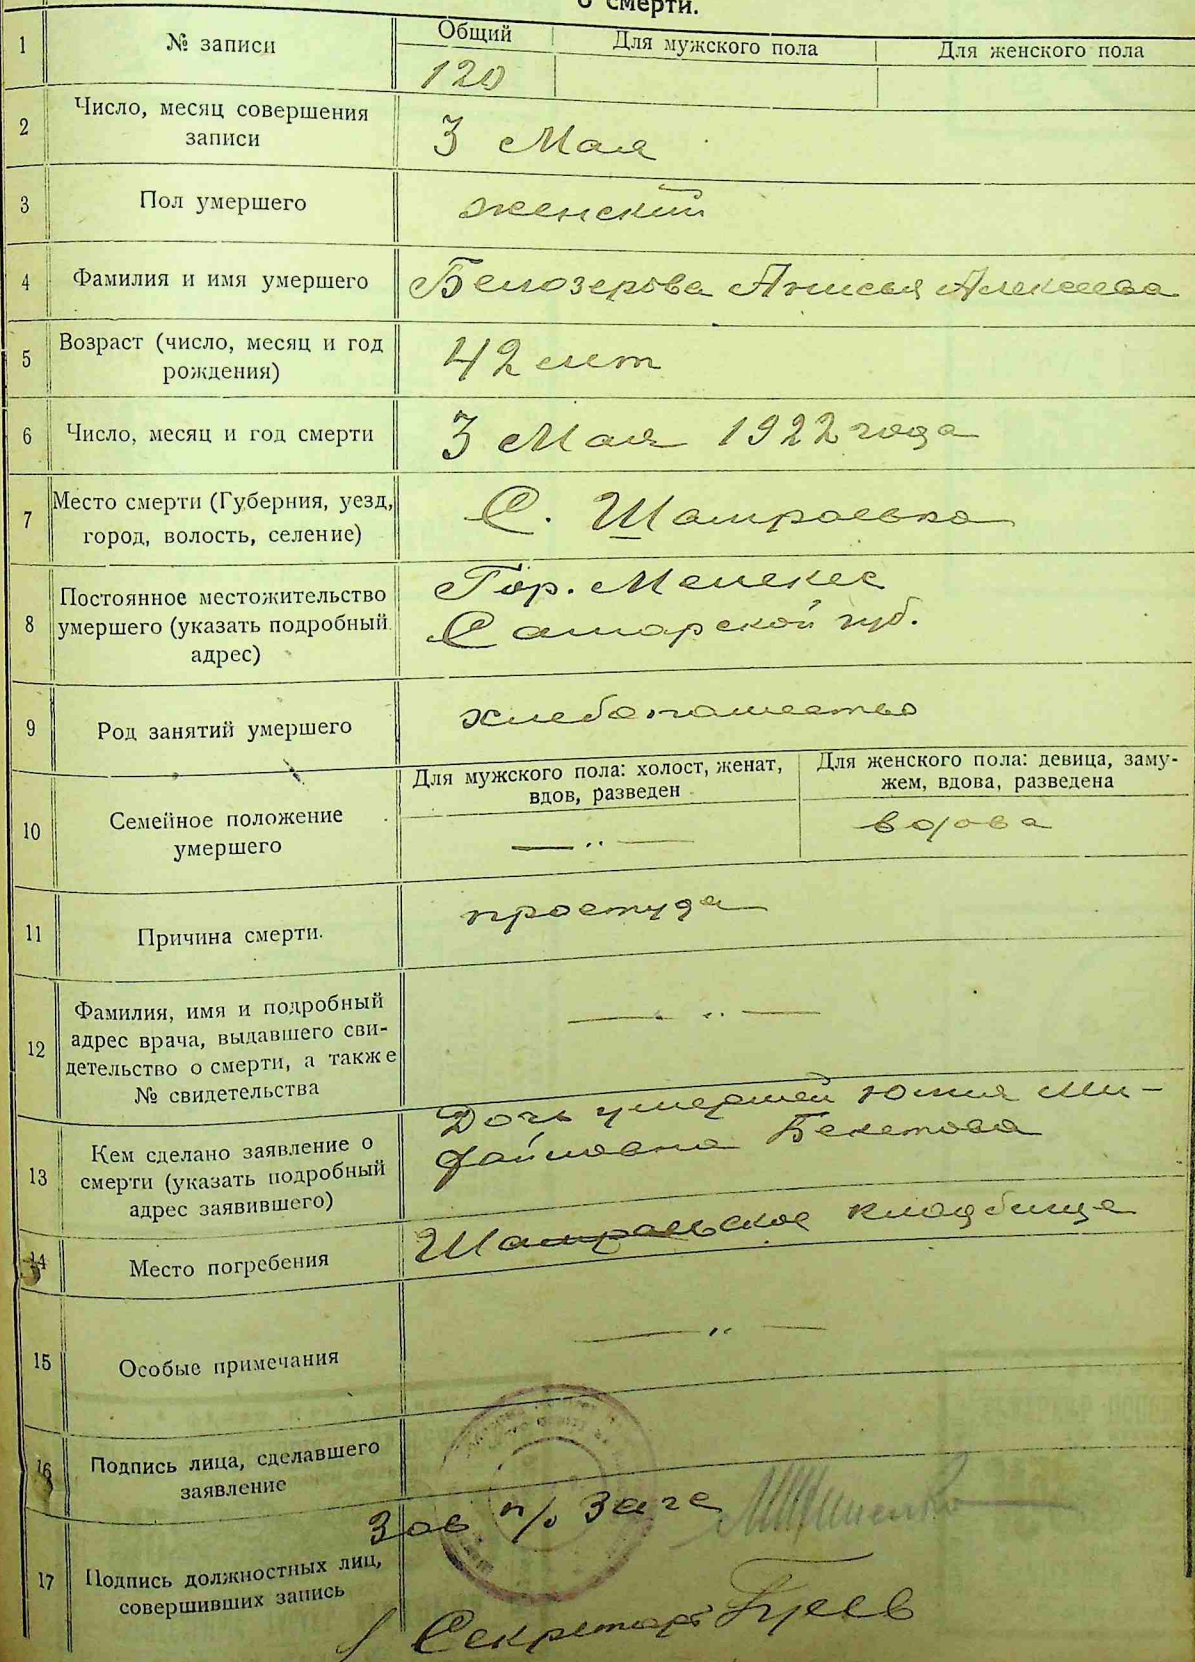 о смерти.
1 № записи Общий Для мужского пола Для женского пола
120
2 Число, месяц совершения
записи
3 Мая
3 Пол умершего женский
4 Фамилия и имя умершего Белозерова Анисья Алексеева
5 Возраст (число, месяц и год
рождения)
42 лет
6 Число, месяц и год смерти 3 Мая 1922 года
7 Место смерти (Губерния, уезд,
город, волость, селение)
С.
8 Постоянное местожительство
умершего (указать подробный
адрес)
Гор. Мелекес
Самарской губ.
9 Род занятий умершего хлебопашество
10 Семейное положение
умершего
Для мужского пола: холост, женат,
вдов, разведен
Для женского пола: девица, заму-
жем, вдова, разведена
— „ —
вдова
11 Причина смерти. простуда
12 Фамилия, имя и подробный
адрес врача, выдавшего сви-
детельство о смерти, а также
№ свидетельства
— „ —
13 Кем сделано заявление о
смерти (указать подробный
адрес заявившего)
Дочь умершей Юлия Ми-
файловна Бекетова
14 Место погребения кладбище
15 Особые примечания — „ —
16 Подпись лица, сделавшего
заявление
17 Подпись должностных лиц,
совершивших запись
Зав п/ Загс
Секретарь